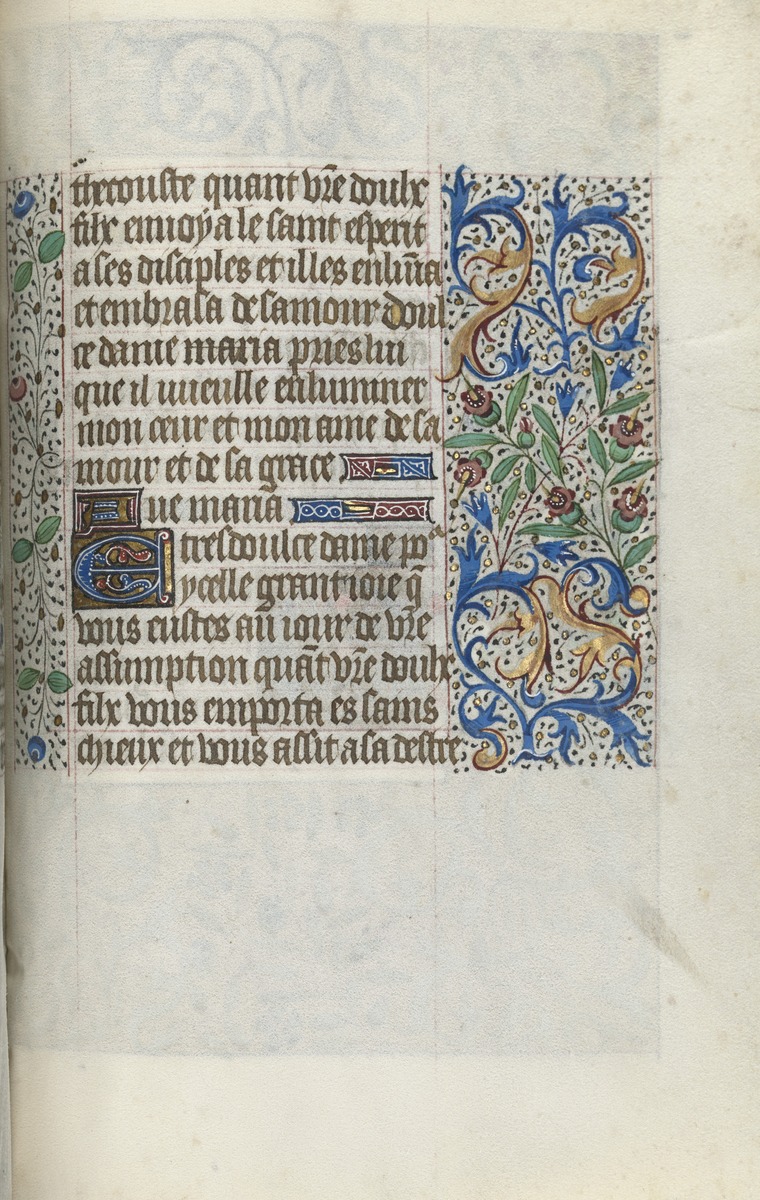 thecouste quant vr̃e doulx
filx enuoya le saint esperit
a ses disciples et illes enlũina
et embrasa de samour doul
ce dame maria pries lui
que il vueille enluminer
mon cœur et mon ame de sa
mour et de sa grace
Aue maria
E tresdoulce dame poᵃ
ycelle grant ioie q̃
vous eustes au iour de vr̃e
assumption quãt vr̃e doulx
filx vous emporta es sains
chieux et vous assit a sa destre